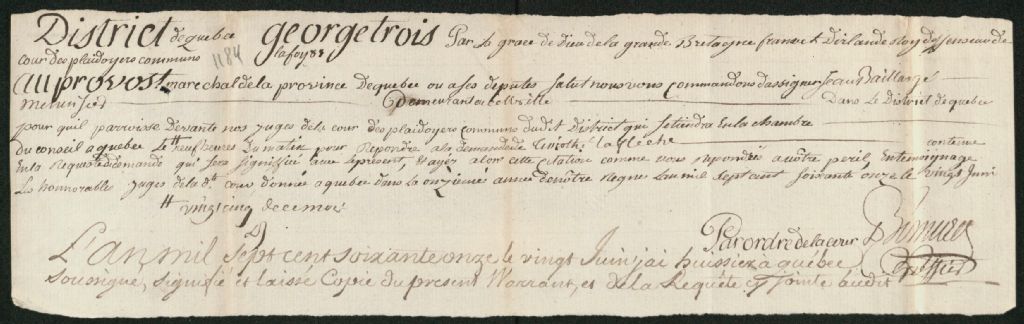 District de quebec georgetrois Par La grace de Dieu de la grande Bretagne france et Dirlande Roy deffenseur de
cour des plaidoyers communs 1184 la foy &&
Au provost marechal de la province De quebec ou a ses deputes Salut nous vous commandons dassigner Jean Baillargé
menuisier Demeurans en cette ville Dans le District de quebec
pour quil parroisse Devant nos juges de la cour des plaidoyers communs dudit District qui se tiendra En la chambre
du conseil a quebec Le heures Du matin pour Repondre a la demande de Lafleche contenue
En la Requeste qui sera signiffié avec le present, et ayez alors cette citation comme vous repondrés a nôtre peril, En temoignage
Les honnorables juges de la dte cour donnée a quebec dans la onziemé année de nôtre Regne Lan mil sept cent soixante onze le vingt Juin
tt vingt cinq de ce mois
Par ordre de la cour
L'an mil Sept cent soixante onze le vingt Juin jai huissier à québec
sousigné, signifié et laissé Copie du present Warrant, et de la Requête cy Jointe audit